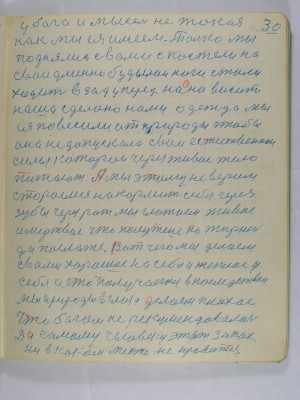 у бога и мысли не такая 30
как мы ея имеем. Только мы
поднялися с вами с постели на
свои длинно будылые ноги стали
ходить в зад у перед на нас висит
наша сделано нами одежда мы
ея повесили от природы чтобы
она не допускала свои естественные
силы которые через живое тело
питают. А мы этому не верим
стараемся накормить себя через
зубы через рот мы глотаем живое
и мертвое что попутело по жирней
да послаже. Вот чего мы делаем
с вами хорошее на себя и жгнас у
себя а что получается в последствии
мы природы взяли делаем плохое
что богом не рекомендовалось
Да самому человеку этот запас
ни в каком месте не нравится